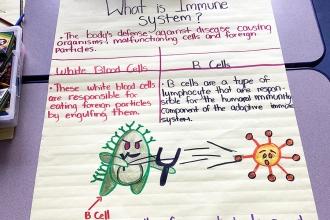 What is Immune
system?
• The body's defense against disease causing
organisms, malfunctioning cells and foreign
Particles.
White Blood Cells
• These white blood cells
are responsible for
eating foreign particles
by engulfing them.
B Cells
• B cells are a type of
lymphocyte that are respon-
sible for the humoral immunity
component of the adaptive immune
system.
B Cell